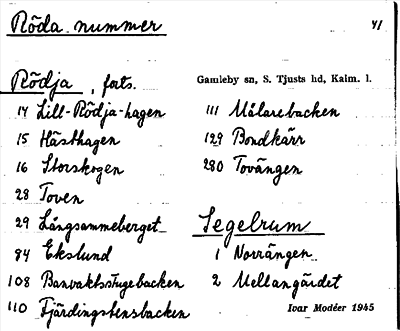 Röda nummer
41
Rödja, forts.
Gamleby sn, S. Tjusts hd, Kalm. l.
14 Lill-Rödja-hagen
15 Hästhagen
16 Storskogen
28 Toven
29 Långsammeberget
84 Ekslund
108 Banvaktsstugebacken
110 Fjärdingstensbacken
111 Målarebacken
129 Bondkärr
280 Tovängen
Segelrum
1 Norrängen
2 Mellangärdet
Ivar Modéer 1945